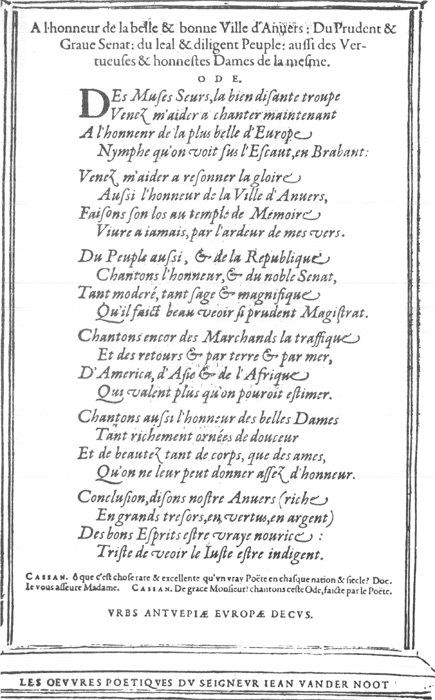 A l'honneur de la belle & bonne Ville d'Anvers: Du Prudent &
Graue Senat: du leal & diligent Peuple: auſſi des Ver-
tueuſes & honneſtes Dames de la meſme.
ODE.
DEs Muſes Seurs, la bien diſante troupe
Venez m'aider a chanter maintenant
A l'honneur de la plus belle d'Europe
Nymphe qu'on voit ſus l'Eſcaut, en Brabant:
Venez m'aider a reſonner la gloire
Auſſi l'honneur de la Ville d'Anuers,
Faiſons ſon los au temple de Memoire
Viure a iamais, par l'ardeur de mes vers.
Du Peuple auſſi, & de la Republique
Chantons l'honneur, & du noble Senat,
Tant moderé, tant ſage & magnifique
Qu'il faict beau veoir ſi prudent Magiſtrat.
Chantons encor des Marchands la traffique
Et des retours & par terre & par mer,
D'America, d'Aſie & de l'Afrique
Qui valent plus qu'on pouroit eſtimer.
Chantons auſſi l'honneur des belles Dames
Tant richement ornées de douceur
Et de beautez tant de corps, que des ames,
Qu'on ne leur peut donner aſſez d'honneur.
Concluſion, diſons noſtre Anuers (riche
En grands treſors, en vertus, en argent)
Des bons Eſprits eſtre vraye nourice:
Triſte de veoir le Iuſte eſtre indigent.
CASSAN. ô que c'eſt choſe rare & excellente qu'vn vray Poëte en chaſque nation & ſiecle? Doc.
Ie vous aſſeure Madame. CASSAN. De grace Monſieur? chantons ceſte Ode, faicte par le Poëte.
VRBS ANTVEPIÆ EVROPÆ DECVS.
LES OEVVRES POETIQVES DV SEIGNEVR IEAN VANDER NOOT